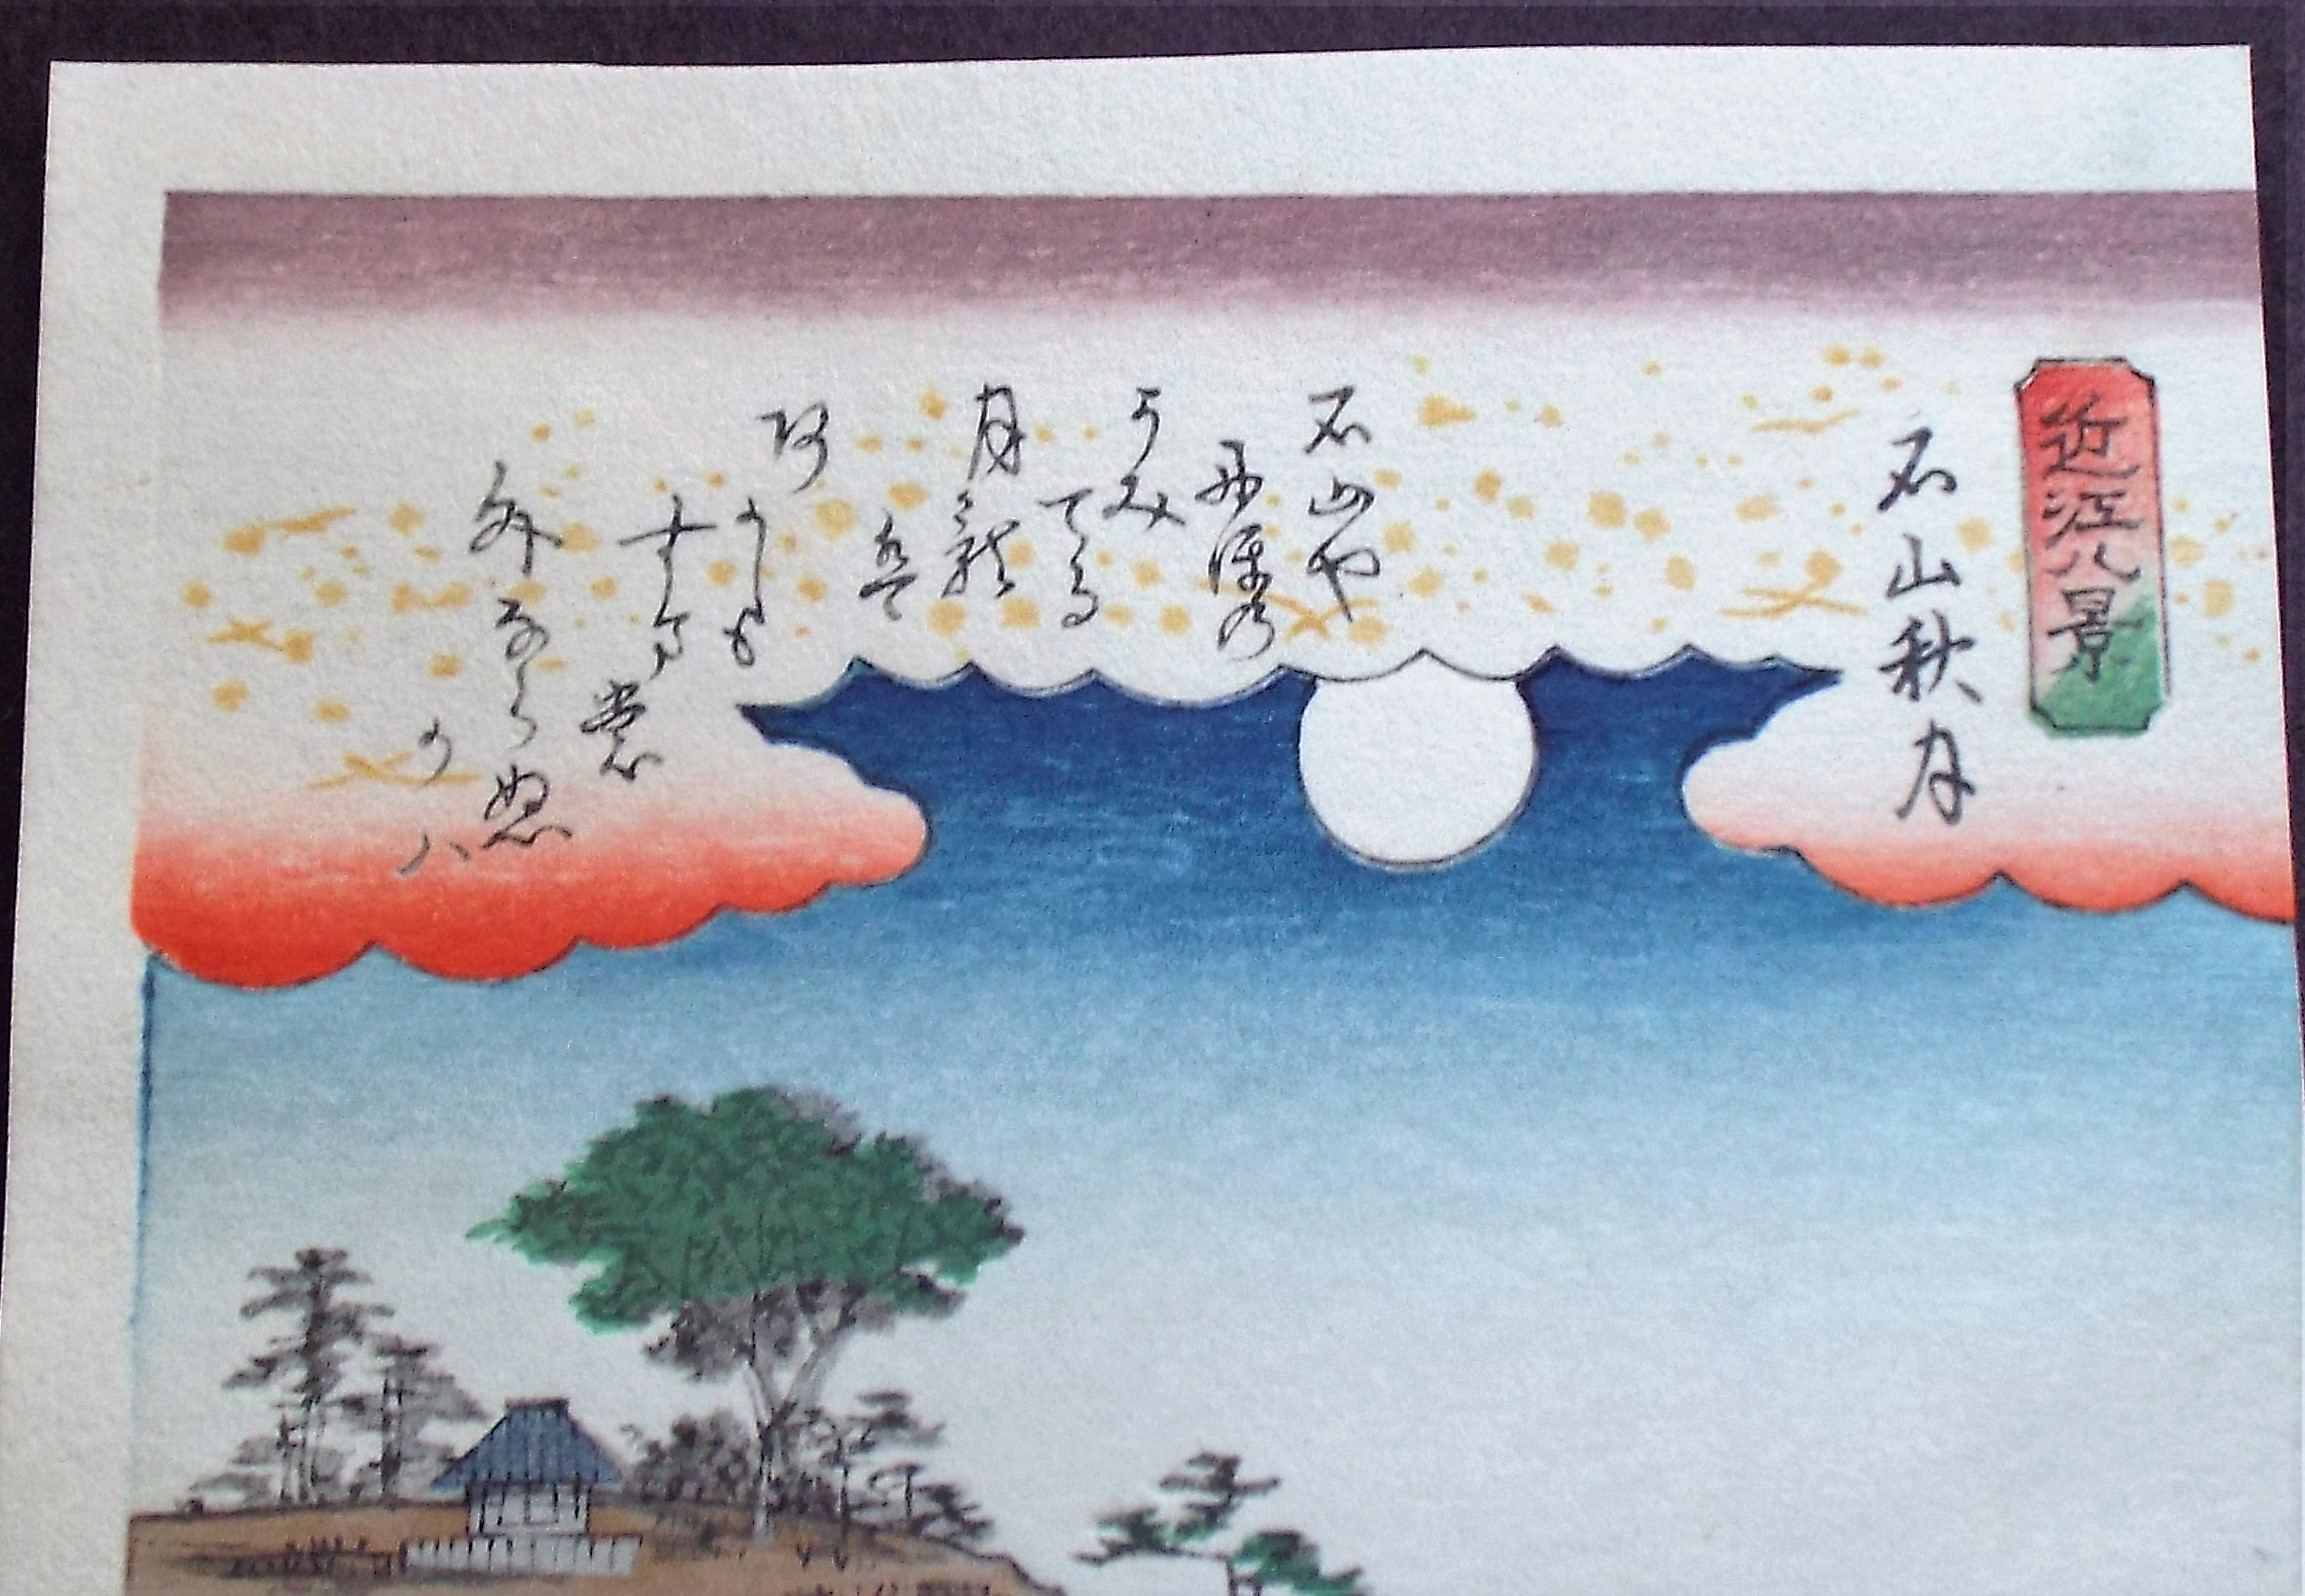 近江八景
石山秋月
石山や
丹保の
うみ
てる
月
盤
阿
かしも
すま
裳
外ならぬ
かハ